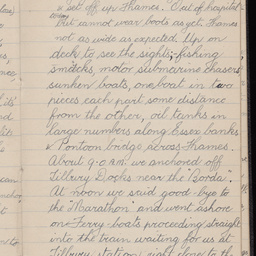 & set off up Thames. Out of hospital
but cannot wear boots as yet. Thames
not as wide as expected. Up on
deck to see the sights; - fishing
smacks, motor submarine chasers
sunken boats, one boat in two
pieces each part some distance
from the other, oil tanks in
large numbers along Essex banks
& Pontoon bridge across Thames.
About 9.0 am we anchored off
Tilbury Docks near the "Borda".
At noon we said good-bye to
the "Marathon" and went ashore
on Ferry-boats proceeding straight
into the train waiting for us at
Tilbury station right close to the